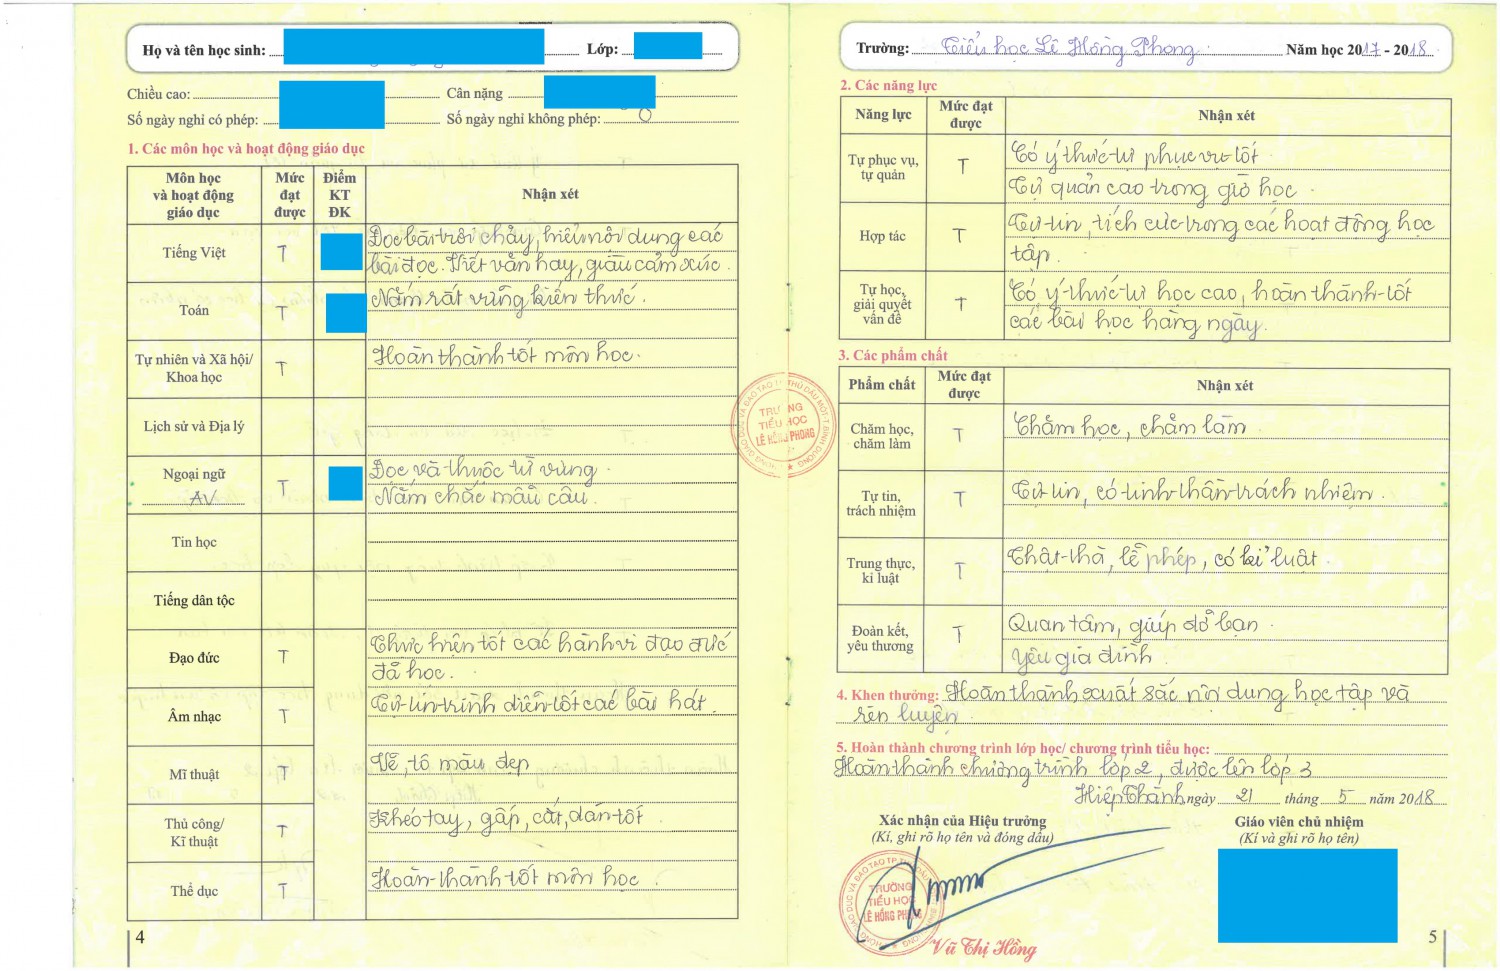 Họ và tên học sinh: Lớp:
Chiều cao: Cân nặng
Số ngày nghỉ có phép: Số ngày nghỉ không phép: 0
1. Các môn học và hoạt động giáo dục
Môn học và hoạt động giáo dục Mức đạt được Điểm KT ĐK Nhận xét
Tiếng Việt T Đọc bài trôi chảy, hiểu nội dung các
bài đọc. Viết văn hay, giàu cảm xúc.
Toán T Nắm rất vững kiến thức.
Tự nhiên và Xã hội/ Khoa học T Hoàn thành tốt môn học.
Lịch sử và Địa lý
Ngoại ngữ T Đọc và thuộc từ vựng.
AV Nắm chắc mẫu câu.
Tin học
Tiếng dân tộc
Đạo đức T Thực hiện tốt các hành vi đạo đức
đã học.
Âm nhạc T Tự tin trình diễn tốt các bài hát.
Mĩ thuật T Vẽ, tô màu đẹp
Thủ công/ Kĩ thuật T Khéo tay, gấp, cắt, dán tốt.
Thể dục T Hoàn thành tốt môn học.
4
Trường: Tiểu học Lê Hồng Phong. Năm học 2017 - 2018
2. Các năng lực
Năng lực Mức đạt được Nhận xét
Tự phục vụ, tự quản T Có ý thức tự phục vụ tốt.
Tự quản cao trong giờ học.
Hợp tác T Tự tin, tích cực trong các hoạt động học
tập.
Tự học, giải quyết vấn đề T Có ý thức tự học cao, hoàn thành tốt
các bài học hàng ngày.
3. Các phẩm chất
Phẩm chất Mức đạt được Nhận xét
Chăm học, chăm làm T Chăm học, chăm làm
Tự tin, trách nhiệm T Tự tin, có tinh thần trách nhiệm.
Trung thực, kỉ luật T Thật thà, lễ phép, có kỉ luật.
Đoàn kết, yêu thương T Quan tâm, giúp đỡ bạn.
Yêu gia đình.
4. Khen thưởng: Hoàn thành xuất sắc nội dung học tập và
rèn luyện.
5. Hoàn thành chương trình lớp học/ chương trình tiểu học:
Hoàn thành chương trình lớp 2, được lên lớp 3
Hiệp Thành, ngày 21 tháng 5 năm 2018
Xác nhận của Hiệu trưởng Giáo viên chủ nhiệm
(Kí, ghi rõ họ tên và đóng dấu) (Kí và ghi rõ họ tên)
TRƯỜNG
TIỂU HỌC
LÊ HỒNG PHONG
Vũ Thị Hồng
5
TRƯỜNG
TIỂU HỌC
LÊ HỒNG PHONG